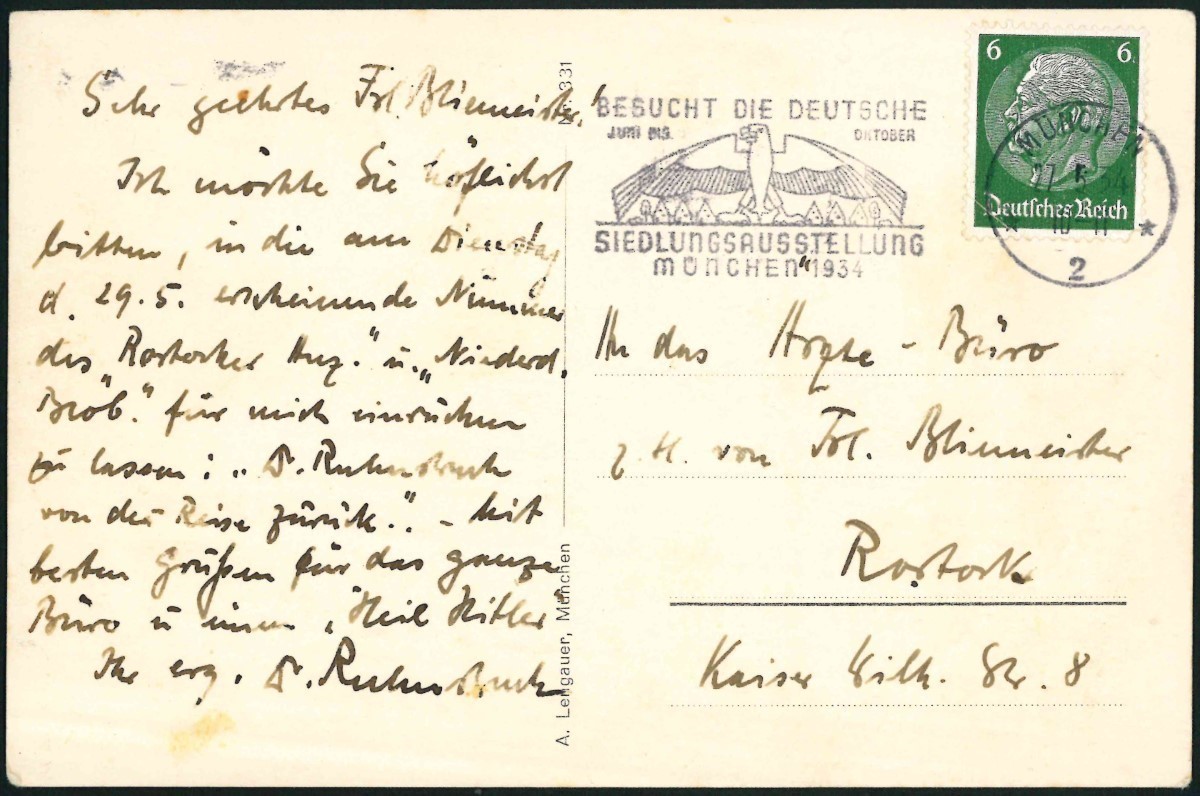 Sehr geehrtes Frl. Bliemeister!
Ich möchte Sie höflichst
bitten, in die am Dienstag
d. 29.5. erscheinende Nummer
des „Rostocker Anz." u. „Niederd.
Beob." für mich einrücken
zu lassen: „Dr.
von der Reise zurück". – Mit
besten Grüßen für das ganze
Büro u. einem „Heil Hitler"
Ihr erg. Dr.
A. Lengauer, München
331
BESUCHT DIE DEUTSCHE
JUNI BIS OKTOBER
SIEDLUNGSAUSSTELLUNG
MÜNCHEN 1934
6 6
Deutsches Reich
MÜNCHEN
27 5 34
2
An das Ärzte-Büro
z. H. von Frl. Bliemeister
Rostock
Kaiser Wilh. Str. 8